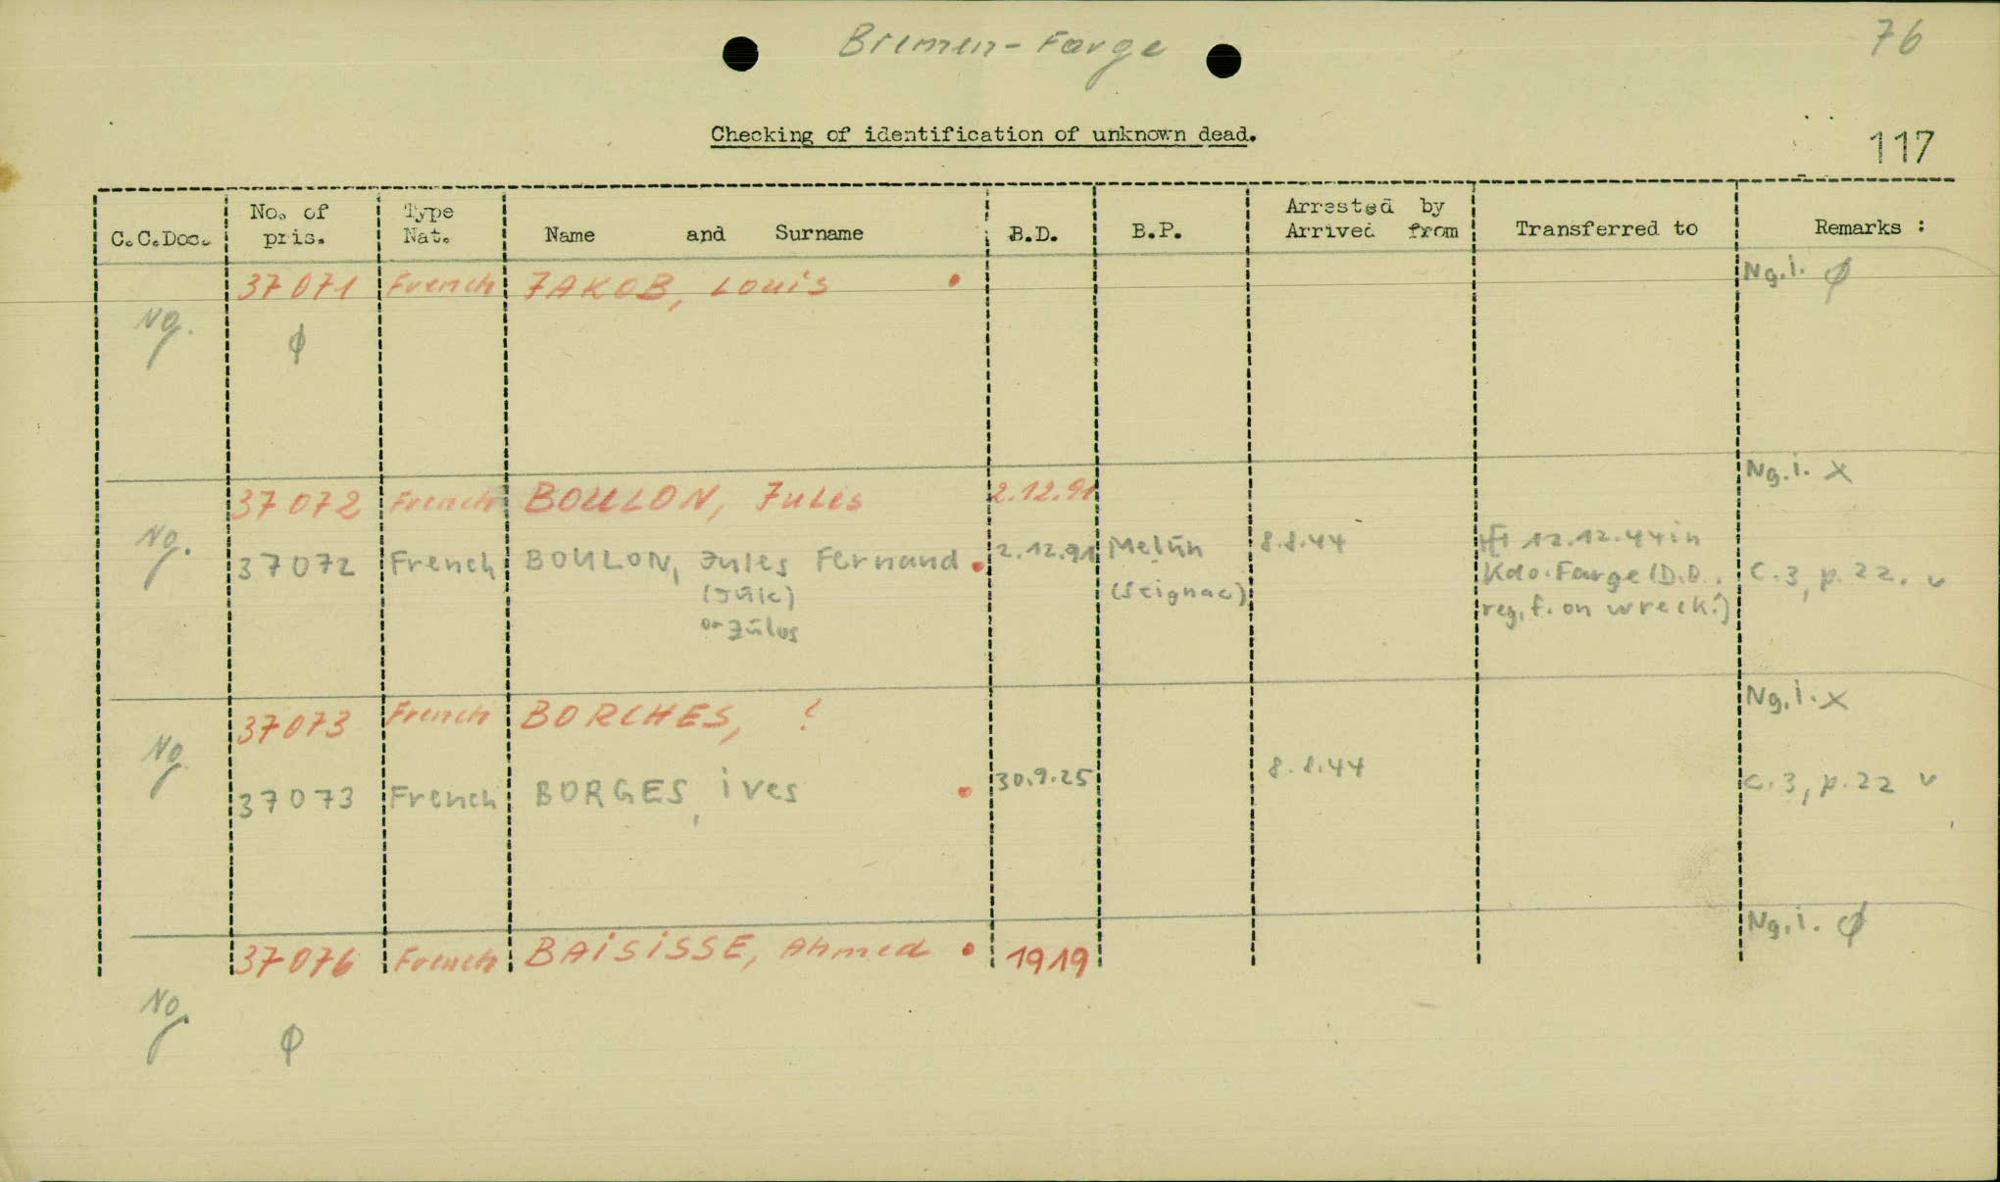 Bremen-Farge
76
Checking of identification of unknown dead.
117
C.C.Doc. No. of pris. Type Nat. Name and Surname B.D. B.P. Arrested by Arrived from Transferred to Remarks :
37071 French JAKOB, Louis Ng.i. ϕ
Ng. ϕ
37072 French BOULON, Jules 2.12.91 Ng.i. x
Ng. 37072 French BOULON, Jules Fernand 2.12.91 Melun 8.8.44 12.12.44 in
(Seignac) Kdo. Farge (D.D. C.3, p.22. v
or Julos reg. f. on wreck!)
37073 French BORCHES, ? Ng.i. x
Ng
37073 French BORGES, ives 30.9.25 8.8.44 C.3, p.22 v
37076 French BAISISSE, Ahmed 1919 Ng.i. ϕ
Ng ϕ